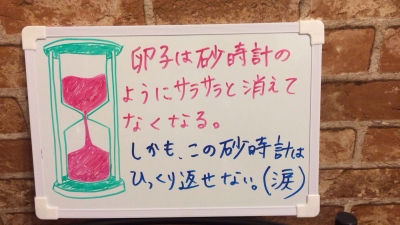 卵子は砂時計の
ようにサラサラと消えて
なくなる。
しかも、この砂時計は
ひっくり返せない。(涙)